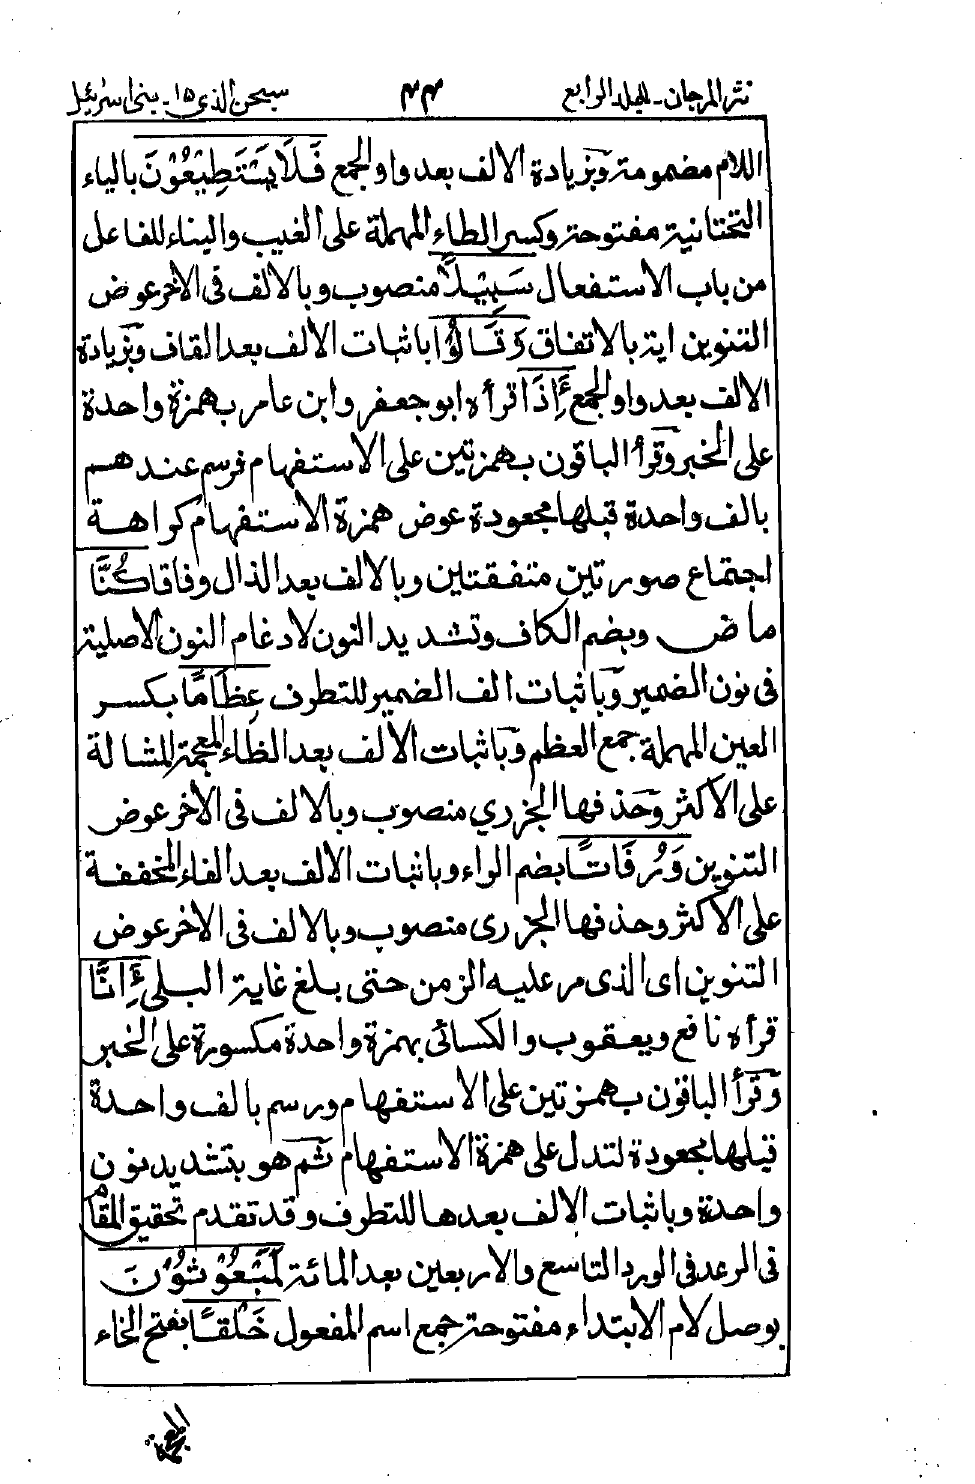 نثر المرجان - المجلد الرابع ٤٤ سبحن الذی ١٥ - بنی اسرئیل
اللام مضمومة وبزیادة الالف بعد واو الجمع فَلَا یَسْتَطِیْعُوْنَ بالیاء
التحتانیة مفتوحة وکسر الطاء المهملة علی الغیب والبناء للفاعل
من باب الاستفعال سَبِیْلًا منصوب وبالالف فی الاٰخر عوض
التنوین ایة بالاتفاق وَقَالُوْا باثبات الالف بعد القاف وبزیادة
الالف بعد واو الجمع ءَاِذَا قرأه ابو جعفر وابن عامر بهمزة واحدة
علی الخبر وقرأ الباقون بهمزتین علی الاستفهام فرسم عندهم
بالف واحدة قبلها مجعودة عوض همزة الاستفهام کراهة
اجتماع صورتین متفقتین وبالالف بعد الذال وفاقا کُنَّا
ماض وبضم الکاف وتشدید النون لادغام النون الاصلیة
فی نون الضمیر وباثبات الف الضمیر للتطرف عِظَامًا بکسر
العین المهملة جمع العظم وباثبات الالف بعد الظاء المعجمة المشالة
علی الاکثر وحذفها الجزری منصوب وبالالف فی الاٰخر عوض
التنوین وَرُفَاتًا بضم الراء وباثبات الالف بعد الفاء المخففة
علی الاکثر وحذفها الجزری منصوب وبالالف فی الاٰخر عوض
التنوین ای الذی مر علیه الزمن حتی بلغ غایة البلی ءَاِنَّا
قرأه نافع ویعقوب والکسائی بهمزة واحدة مکسورة علی الخبر
وقرأ الباقون بهمزتین علی الاستفهام ورسم بالف واحدة
قبلها مجعودة لتدل علی همزة الاستفهام ثم هو بتشدید نون
واحدة وباثبات الالف بعدها للتطرف وقد تقدم تحقیق المقام
فی الرعد فی الورد التاسع والاربعین بعد المائة لَمَبْعُوْثُوْنَ
بوصل لام الابتداء مفتوحة جمع اسم المفعول خَلْقًا بفتح الخاء
المعجمة